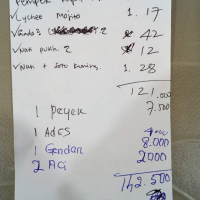 Lychee Mojito 1. 17
42
Nasi putih 2 12
Nasi + Soto kuning 1. 28
121.000
1 Peyek 7.500
1 Ades 4000
1 Gendar 8.000
2 Aci 2000
142.500